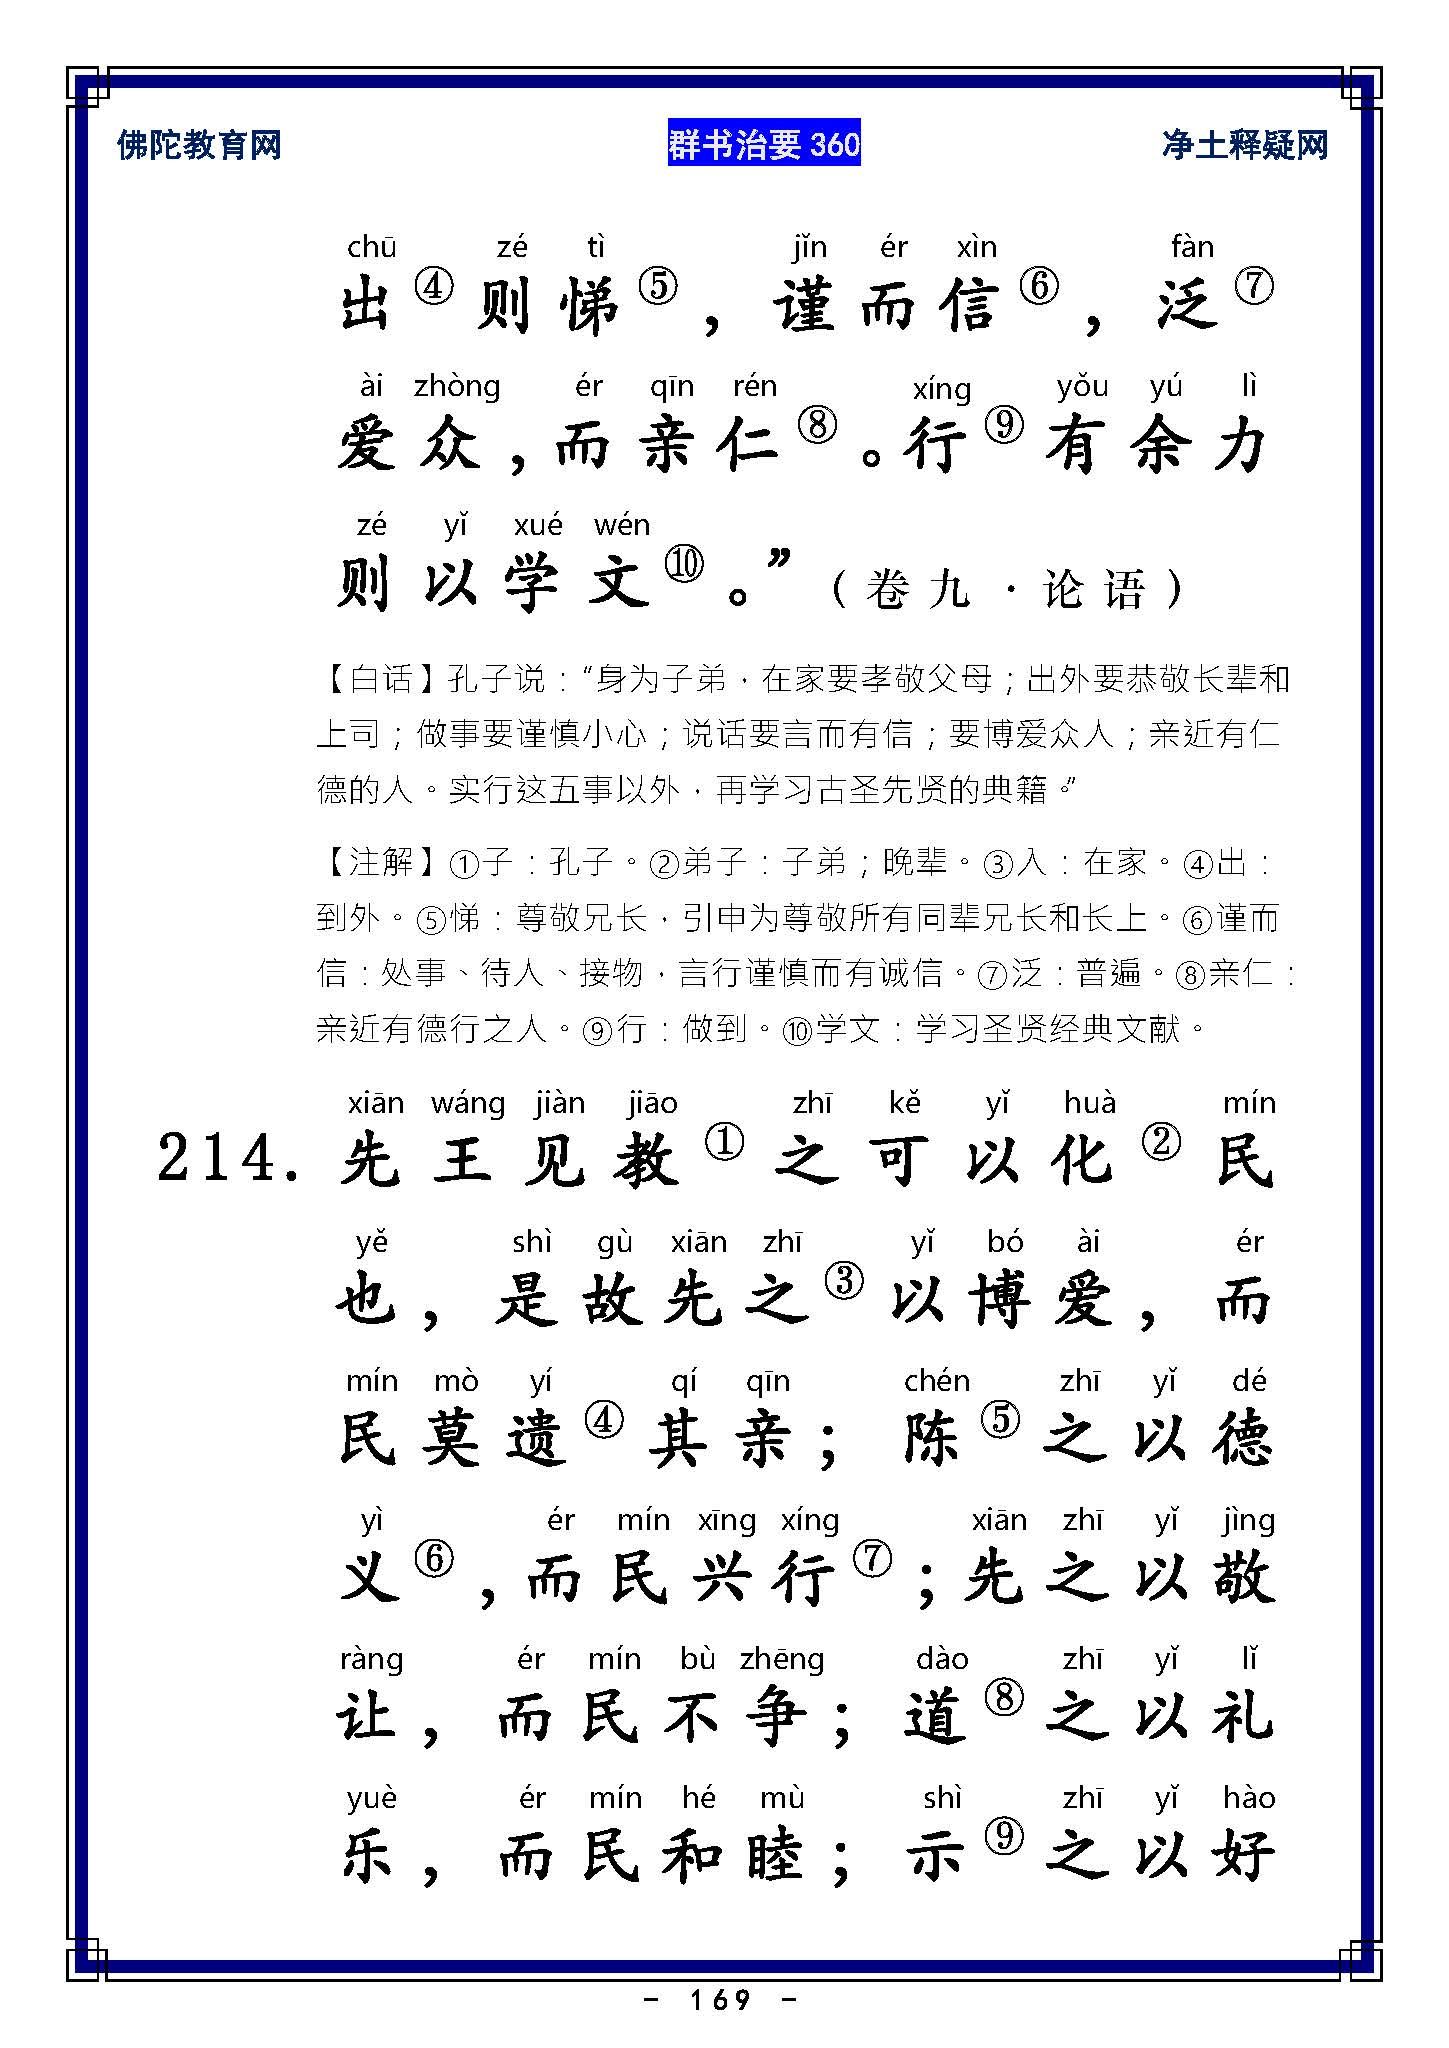 佛陀教育网 群书治要 360 净土释疑网
chū zé tì jǐn ér xìn fàn
出④则悌⑤，谨而信⑥，泛⑦
ài zhòng ér qīn rén xíng yǒu yú lì
爱众，而亲仁⑧。行⑨有余力
zé yǐ xué wén
则以学文⑩。”（卷九·论语）
【白话】孔子说：“身为子弟，在家要孝敬父母；出外要恭敬长辈和
上司；做事要谨慎小心；说话要言而有信；要博爱众人；亲近有仁
德的人。实行这五事以外，再学习古圣先贤的典籍。”
【注解】①子：孔子。②弟子：子弟；晚辈。③入：在家。④出：
到外。⑤悌：尊敬兄长，引申为尊敬所有同辈兄长和长上。⑥谨而
信：处事、待人、接物，言行谨慎而有诚信。⑦泛：普遍。⑧亲仁：
亲近有德行之人。⑨行：做到。⑩学文：学习圣贤经典文献。
xiān wáng jiàn jiāo zhī kě yǐ huà mín
214. 先王见教①之可以化②民
yě shì gù xiān zhī yǐ bó ài ér
也，是故先之③以博爱，而
mín mò yí qí qīn chén zhī yǐ dé
民莫遗④其亲；陈⑤之以德
yì ér mín xīng xíng xiān zhī yǐ jìng
义⑥，而民兴行⑦；先之以敬
ràng ér mín bù zhēng dào zhī yǐ lǐ
让，而民不争；道⑧之以礼
yuè ér mín hé mù shì zhī yǐ hào
乐，而民和睦；示⑨之以好
- 169 -